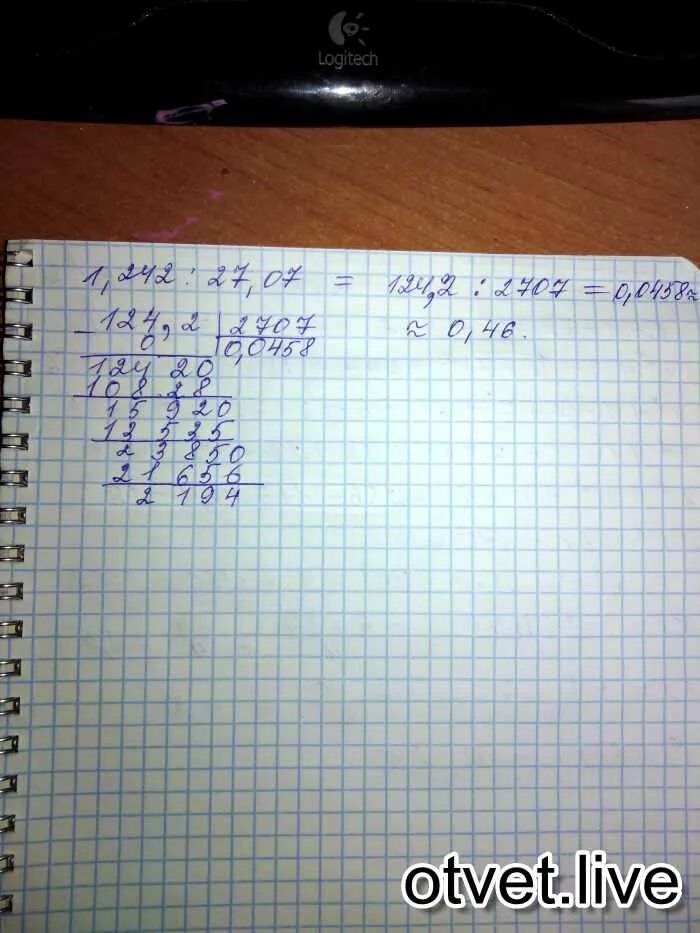 Logitech
1,242 : 27,07 = 124,2 : 2707 = 0,0458 ≈
≈ 0,46.
- 124,2 | 2707
0 | 0,0458
124 20
108 28
15 920
12 525
2 3 850
21 656
2 194
otvet.live